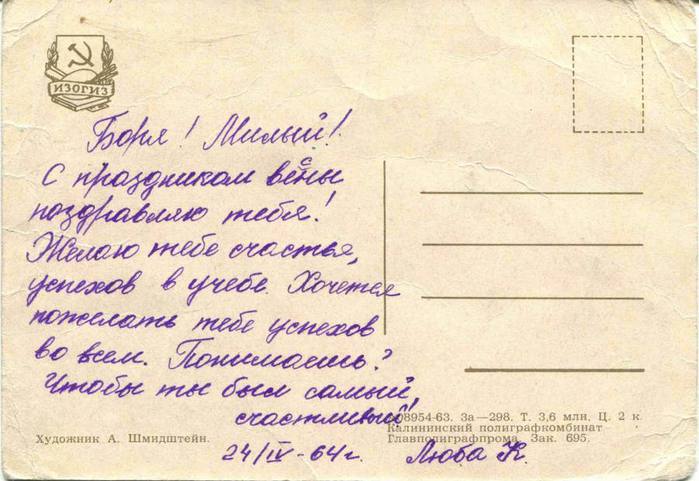 ИЗОГИЗ
Боря! Милый!
С праздником весны
поздравляю тебя!
Желаю тебе счастья,
успехов в учебе. Хочется
пожелать тебе успехов
во всем. Понимаешь?
Чтобы ты был самый,
счастливый!
24/IV-64 г. Люба К.
Художник А. Шмидштейн.
08954-63. За—298. Т. 3,6 млн. Ц. 2 к.
Калининский полиграфкомбинат
Главполиграфпрома. Зак. 695.